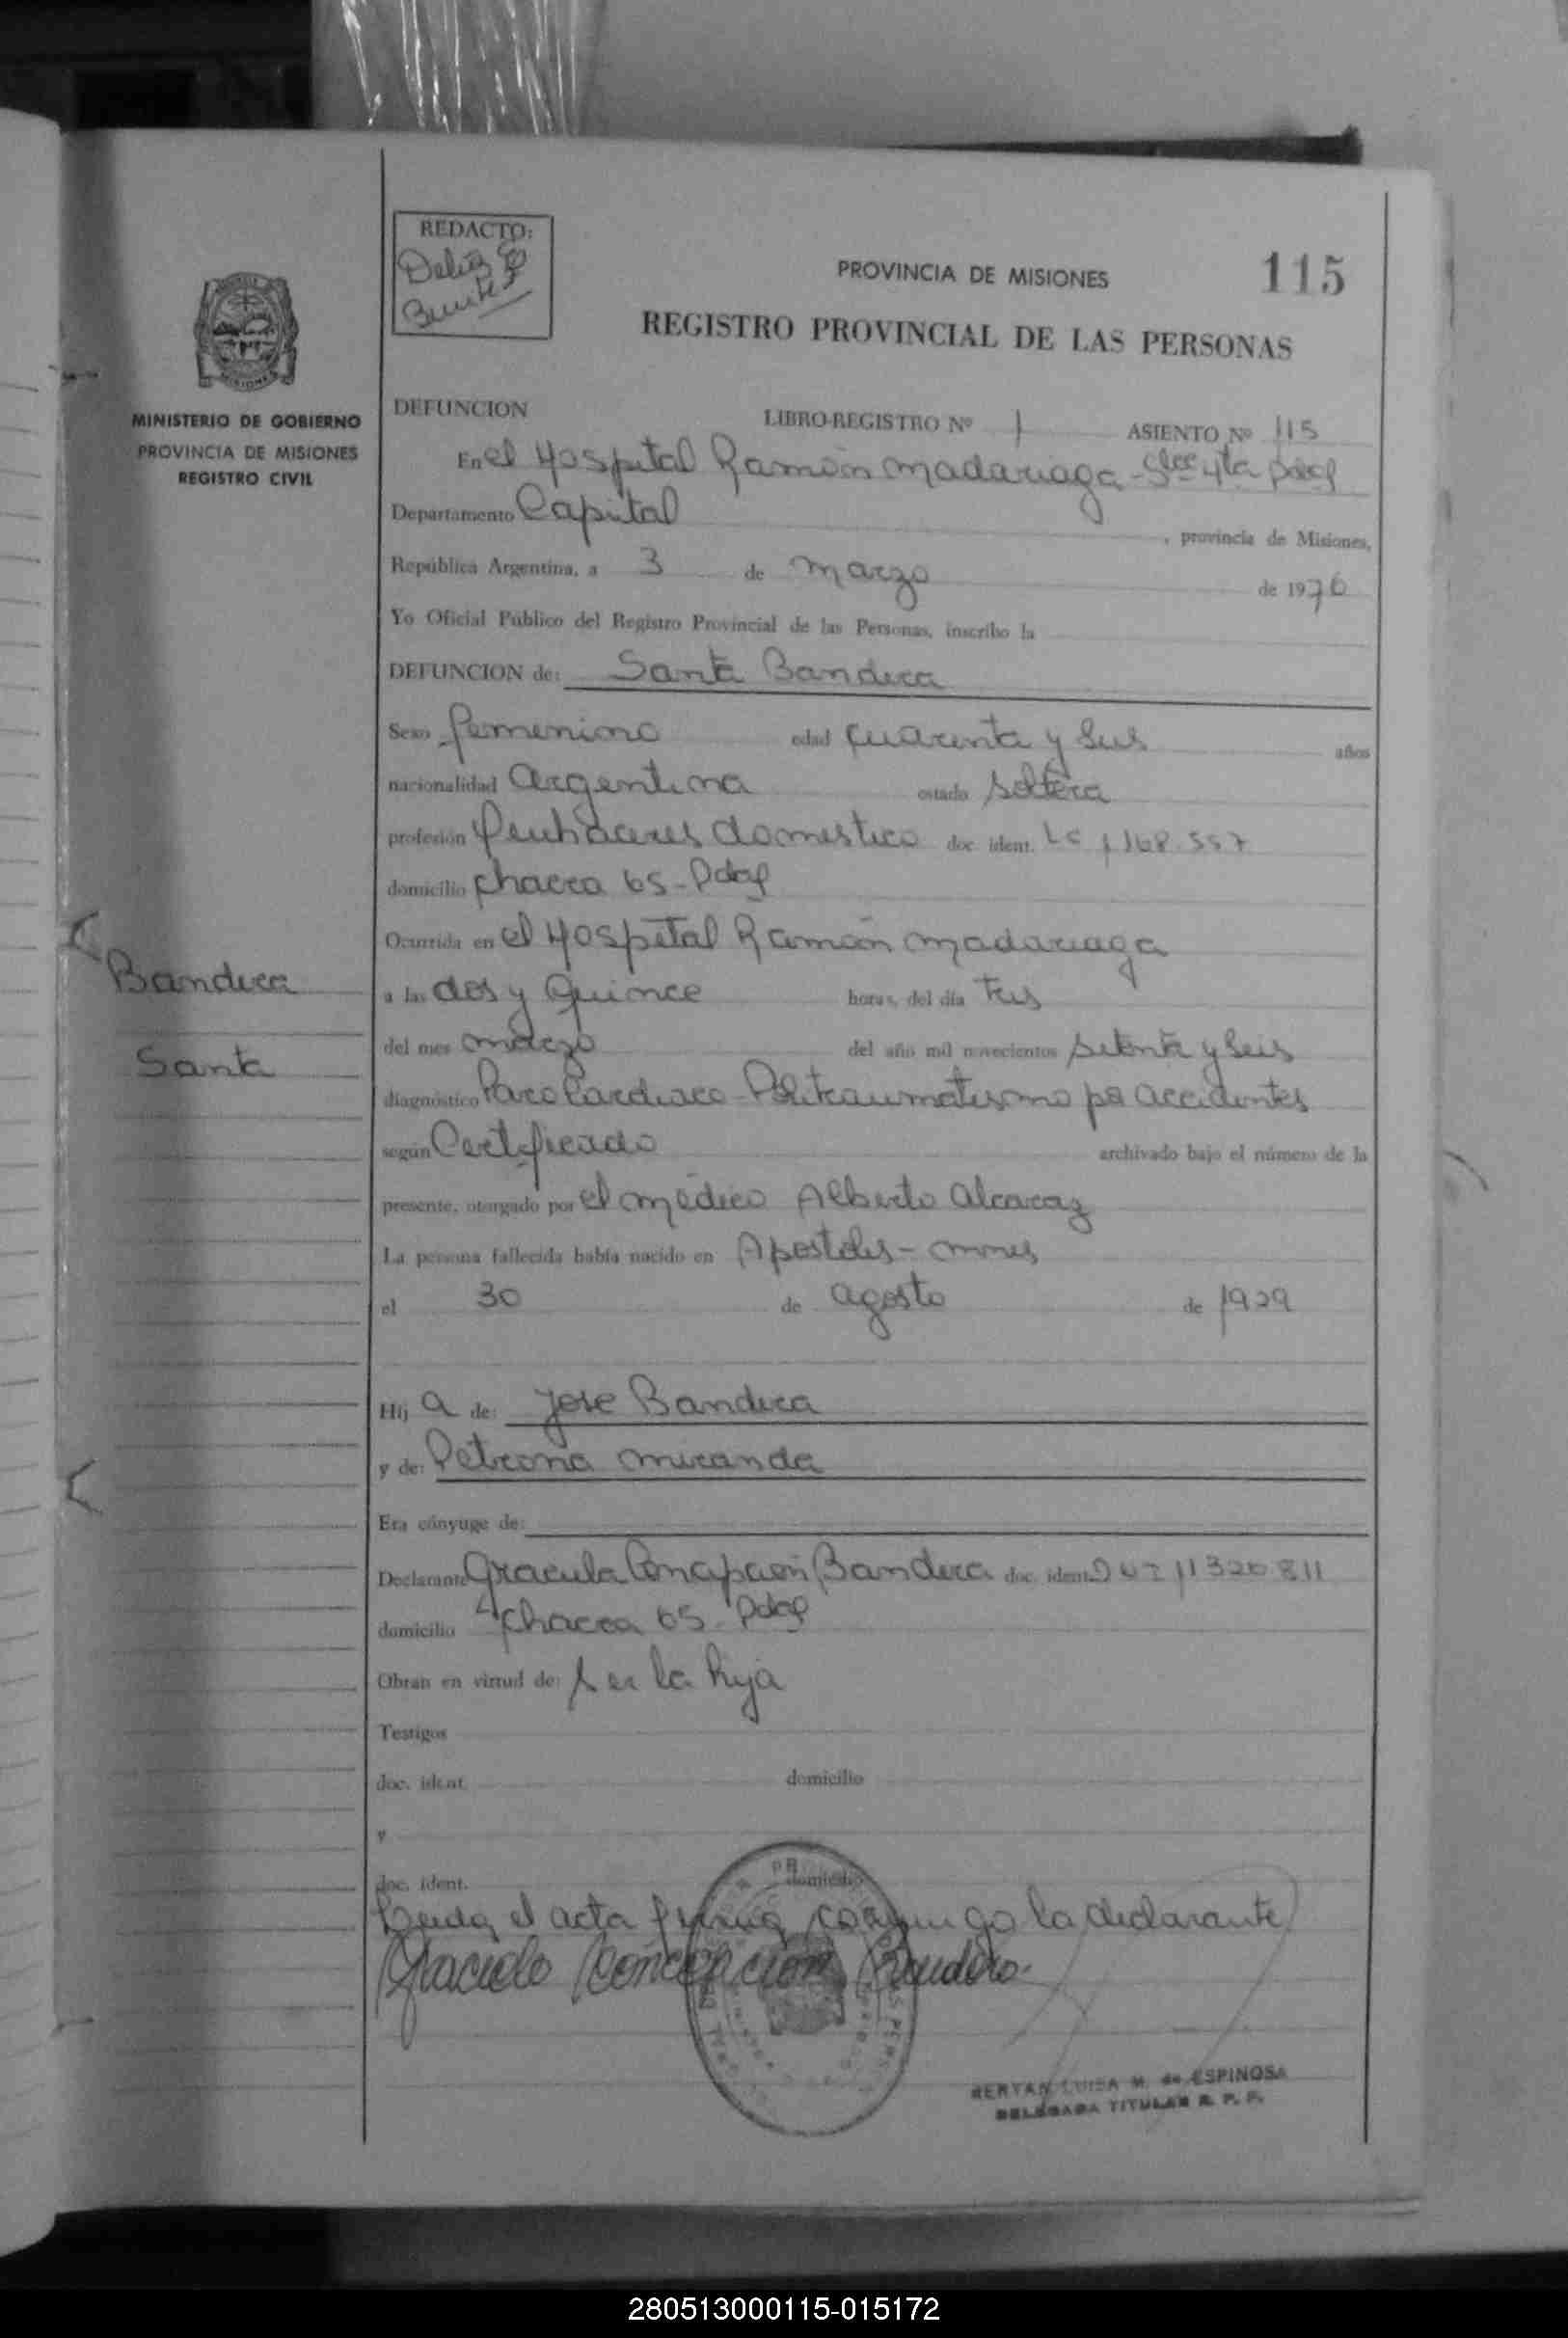 REDACTO:
Delia E
Benitez
PROVINCIA DE MISIONES
115
REGISTRO PROVINCIAL DE LAS PERSONAS
MINISTERIO DE GOBIERNO
PROVINCIA DE MISIONES
REGISTRO CIVIL
DEFUNCION LIBRO-REGISTRO Nº 1 ASIENTO Nº 115
En el Hospital Ramón Madariaga - Secc 4ta Pdas
Departamento Capital , provincia de Misiones,
República Argentina, a 3 de Marzo de 1976
Yo Oficial Público del Registro Provincial de las Personas, inscribo la
DEFUNCION de: Santa Bandera
Sexo femenino edad cuarenta y seis años
nacionalidad Argentina estado soltera
profesión domestico doc. ident. LC
domicilio chacra 65 - Pdas
Ocurrida en el Hospital Ramón Madariaga
a las dos y Quince horas, del día tres
del mes marzo del año mil novecientos setenta y seis
diagnóstico Paro Cardiaco - Politraumatismo por accidentes
según Certificado archivado bajo el número de la
presente, otorgado por el médico Alberto Alcaraz
La persona fallecida había nacido en Apostoles - mnes
el 30 de agosto de 1929
Hij a de: Jose Bandera
y de: Petrona Miranda
Era cónyuge de:
Declarante Graciela Concepcion Bandera doc. ident. 11320811
domicilio chacra 65 - Pdas
Obran en virtud de: ser la hija
Testigos
doc. ident. domicilio
y
doc. ident. domicilio
Leida el acta firma conmigo la declarante
Graciela Concepcion Bandera
Bandera
Santa
LUISA M. de ESPINOSA
DELEGADA TITULAR R. P. P.
280513000115-015172